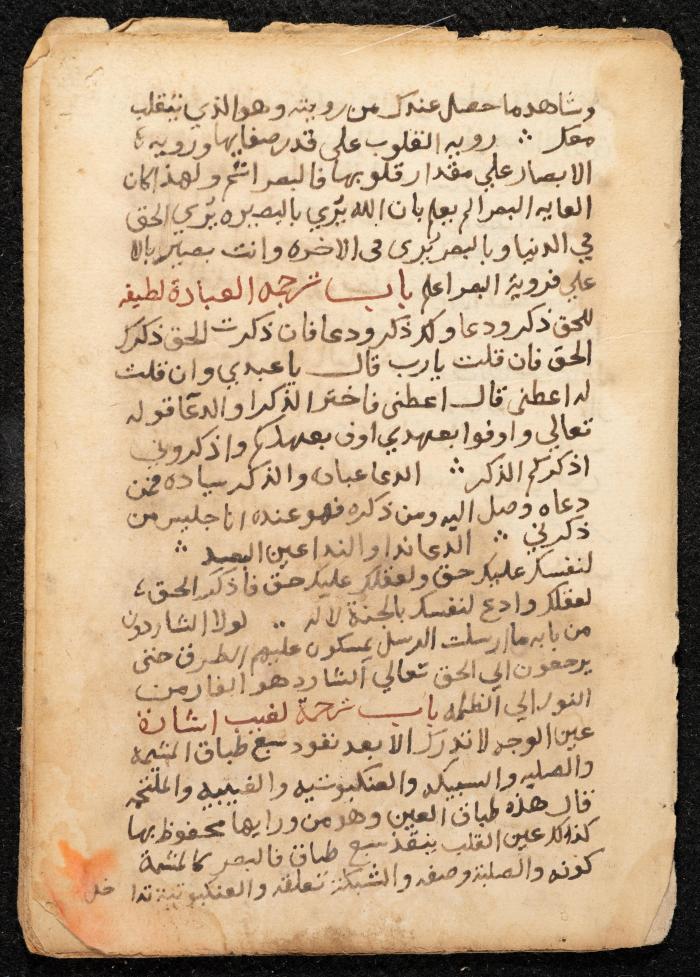 وشاهد ما حصل عندك من رويته وهو الذي ينقلب
معك ؞ رويه القلوب على قدر صفايها ورويه
الابصار على مقدار قلوبها فالبصر اتم ولهذا كان
الغايه البصر الم يعلم بان الله يُري بالبصيره يُري الحق
في الدنيا وبالبصر يُرى فى الاخره وانت بصير بالا
على فروية البصر اعلم باب ترجمه العبادة لطيفه
للحق ذكر ودعا ولك ذكر ودعا فان ذكرت الحق ذكرك
الحق فان قلت يا رب قال يا عبدي وان قلت
له اعطنى قال اعطنى فاختر الذكر او الدعا قوله
تعالي واوفوا بعهدي اوف بعهدكم واذكروني
اذكركم الذكر ؞ الدعا عباده والذكر سياده فمن
دعاه وصل اليه ومن ذكره فهو عنده انا جليس من
ذكرني ؞ الدعا ندا والندا عين البعد ؞
لنفسك عليك حق ولعقلك عليك حق فاذكر الحق
لعقلك وادع لنفسك بالجنة لا له .. لولا الشاردون
من بابه ما ارسلت الرسل يمسكون عليهم الطرق حتى
يرجعون الي الحق تعالي الشارد هو الفار من
النور الي الظلمه باب ترجمة لغيب اشارة
عين الوجه لا تدرك الا بعد نفود سبع طباق المشيمة
والصلبه والسبيكه والعنكبوتيه والغيبيه والملتحمه
قال هذه طباق العين وهو من ورايها محفوظ بها
كذلك عين القلب ينفذ سبع طباق فالبصر كالمشيمة
كونه والصلبة وصفه والشبكة تعلقه والعنكبوتية تدا خل